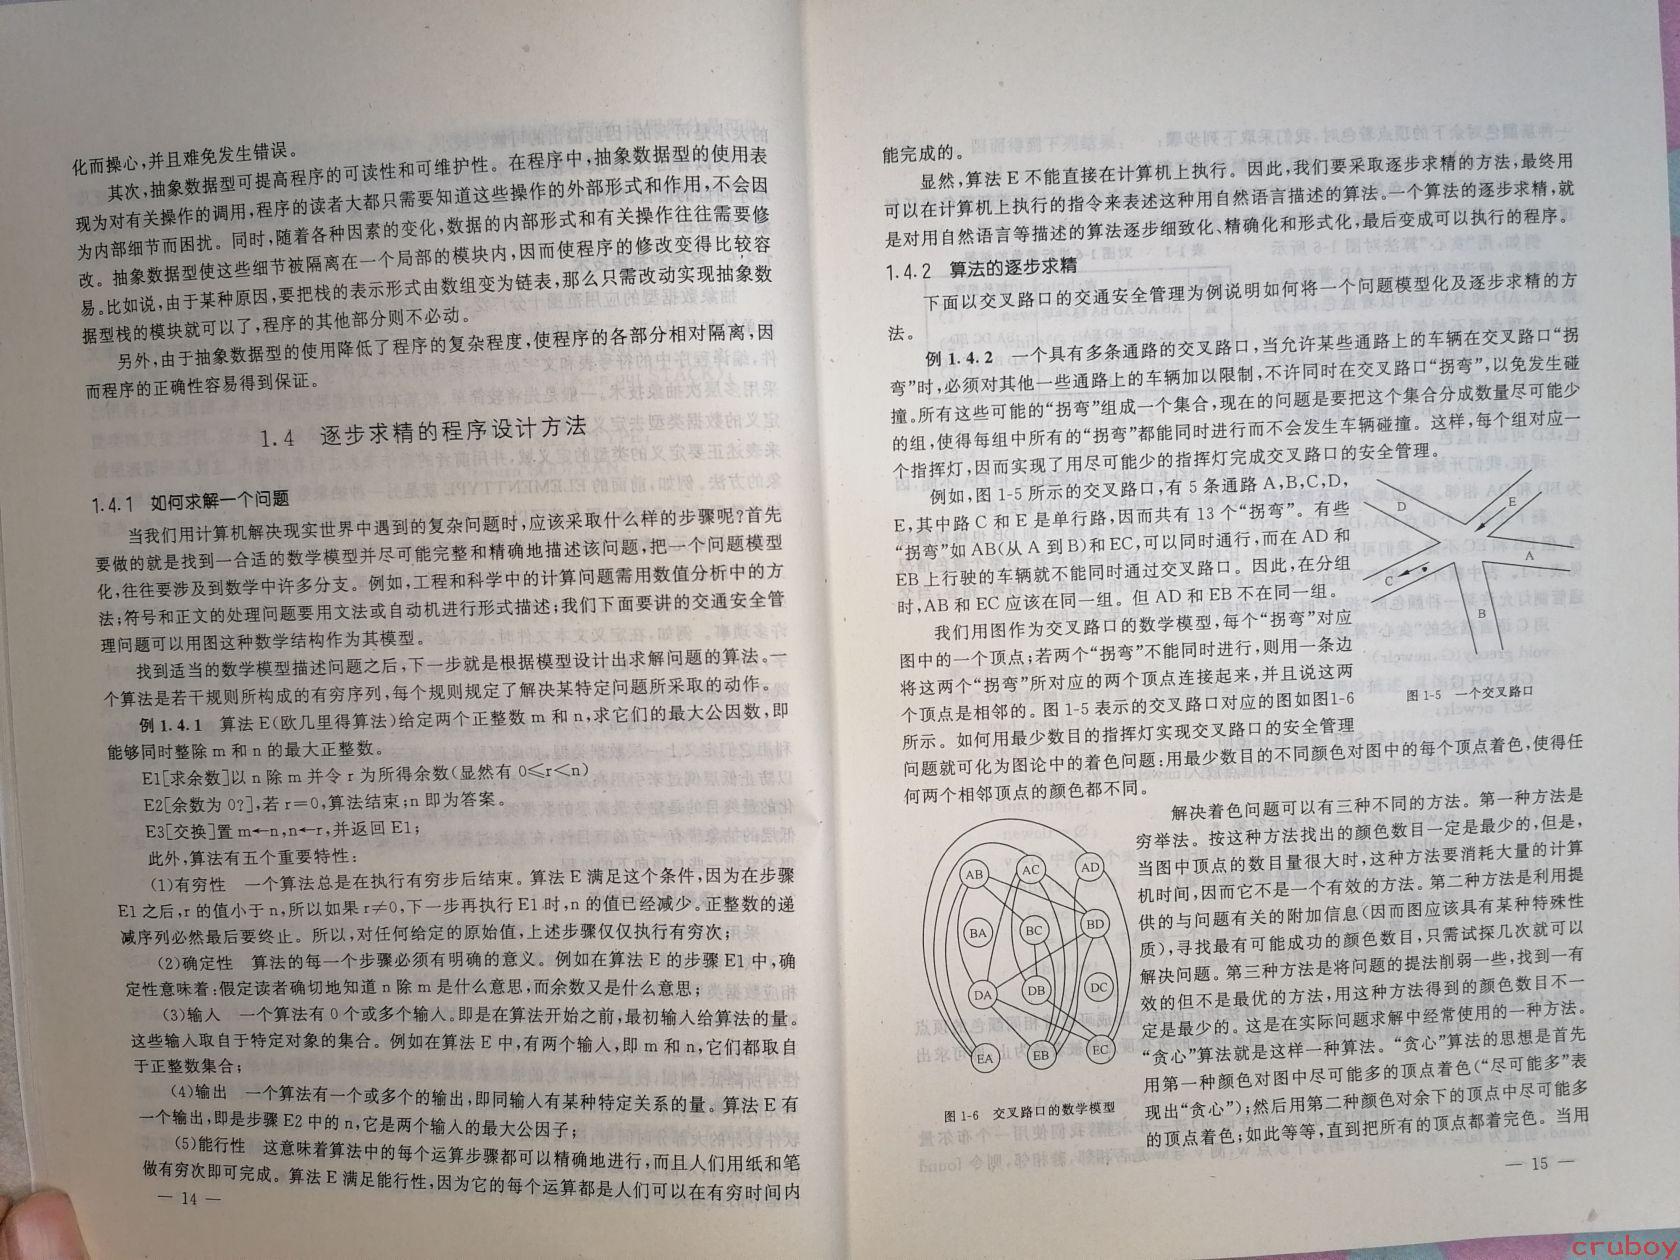 化而操心,并且难免发生错误。
其次,抽象数据型可提高程序的可读性和可维护性。在程序中,抽象数据型的使用表
现为对有关操作的调用,程序的读者大都只需要知道这些操作的外部形式和作用,不会因
为内部细节而困扰。同时,随着各种因素的变化,数据的内部形式和有关操作往往需要修
改。抽象数据型使这些细节被隔离在一个局部的模块内,因而使程序的修改变得比较容
易。比如说,由于某种原因,要把栈的表示形式由数组变为链表,那么只需改动实现抽象数
据型栈的模块就可以了,程序的其他部分则不必动。
另外,由于抽象数据型的使用降低了程序的复杂程度,使程序的各部分相对隔离,因
而程序的正确性容易得到保证。
1.4 逐步求精的程序设计方法
1.4.1 如何求解一个问题
当我们用计算机解决现实世界中遇到的复杂问题时,应该采取什么样的步骤呢?首先
要做的就是找到一合适的数学模型并尽可能完整和精确地描述该问题,把一个问题模型
化,往往要涉及到数学中许多分支。例如,工程和科学中的计算问题需用数值分析中的方
法;符号和正文的处理问题要用文法或自动机进行形式描述;我们下面要讲的交通安全管
理问题可以用图这种数学结构作为其模型。
找到适当的数学模型描述问题之后,下一步就是根据模型设计出求解问题的算法。一
个算法是若干规则所构成的有穷序列,每个规则规定了解决某特定问题所采取的动作。
例1.4.1 算法E(欧几里得算法)给定两个正整数m和n,求它们的最大公因数,即
能够同时整除m和n的最大正整数。
E1[求余数]以n除m并令r为所得余数(显然有0≤r<n)
E2[余数为0?],若r=0,算法结束;n即为答案。
E3[交换]置m←n,n←r,并返回E1;
此外,算法有五个重要特性:
(1)有穷性 一个算法总是在执行有穷步后结束。算法E满足这个条件,因为在步骤
E1之后,r的值小于n,所以如果r≠0,下一步再执行E1时,n的值已经减少。正整数的递
减序列必然最后要终止。所以,对任何给定的原始值,上述步骤仅仅执行有穷次;
(2)确定性 算法的每一个步骤必须有明确的意义。例如在算法E的步骤E1中,确
定性意味着:假定读者确切地知道n除m是什么意思,而余数又是什么意思;
(3)输入 一个算法有0个或多个输入。即是在算法开始之前,最初输入给算法的量。
这些输入取自于特定对象的集合。例如在算法E中,有两个输入,即m和n,它们都取自
于正整数集合;
(4)输出 一个算法有一个或多个的输出,即同输入有某种特定关系的量。算法E有
一个输出,即是步骤E2中的n,它是两个输入的最大公因子;
(5)能行性 这意味着算法中的每个运算步骤都可以精确地进行,而且人们用纸和笔
做有穷次即可完成。算法E满足能行性,因为它的每个运算都是人们可以在有穷时间内
— 14 —
能完成的。
显然,算法E不能直接在计算机上执行。因此,我们要采取逐步求精的方法,最终用
可以在计算机上执行的指令来表述这种用自然语言描述的算法。一个算法的逐步求精,就
是对用自然语言等描述的算法逐步细致化、精确化和形式化,最后变成可以执行的程序。
1.4.2 算法的逐步求精
下面以交叉路口的交通安全管理为例说明如何将一个问题模型化及逐步求精的方
法。
例1.4.2 一个具有多条通路的交叉路口,当允许某些通路上的车辆在交叉路口“拐
弯”时,必须对其他一些通路上的车辆加以限制,不许同时在交叉路口“拐弯”,以免发生碰
撞。所有这些可能的“拐弯”组成一个集合,现在的问题是要把这个集合分成数量尽可能少
的组,使得每组中所有的“拐弯”都能同时进行而不会发生车辆碰撞。这样,每个组对应一
个指挥灯,因而实现了用尽可能少的指挥灯完成交叉路口的安全管理。
例如,图1-5所示的交叉路口,有5条通路A,B,C,D,
E,其中路C和E是单行路,因而共有13个“拐弯”。有些
“拐弯”如AB(从A到B)和EC,可以同时通行,而在AD和
EB上行驶的车辆就不能同时通过交叉路口。因此,在分组
时,AB和EC应该在同一组。但AD和EB不在同一组。
我们用图作为交叉路口的数学模型,每个“拐弯”对应
图中的一个顶点;若两个“拐弯”不能同时进行,则用一条边
将这两个“拐弯”所对应的两个顶点连接起来,并且说这两
个顶点是相邻的。图1-5表示的交叉路口对应的图如图1-6
所示。如何用最少数目的指挥灯实现交叉路口的安全管理
问题就可化为图论中的着色问题:用最少数目的不同颜色对图中的每个顶点着色,使得任
何两个相邻顶点的颜色都不同。
D
E
A
C
B
图1-5 一个交叉路口
解决着色问题可以有三种不同的方法。第一种方法是
穷举法。按这种方法找出的颜色数目一定是最少的,但是,
当图中顶点的数目量很大时,这种方法要消耗大量的计算
机时间,因而它不是一个有效的方法。第二种方法是利用提
供的与问题有关的附加信息(因而图应该具有某种特殊性
质),寻找最有可能成功的颜色数目,只需试探几次就可以
解决问题。第三种方法是将问题的提法削弱一些,找到一有
效的但不是最优的方法,用这种方法得到的颜色数目不一
定是最少的。这是在实际问题求解中经常使用的一种方法。
“贪心”算法就是这样一种算法。“贪心”算法的思想是首先
用第一种颜色对图中尽可能多的顶点着色(“尽可能多”表
现出“贪心”);然后用第二种颜色对余下的顶点中尽可能多
的顶点着色;如此等等,直到把所有的顶点都着完色。当用
AB AC AD
BA BC BD
DA DB DC
EA EB EC
图1-6 交叉路口的数学模型
— 15 —
cruboy